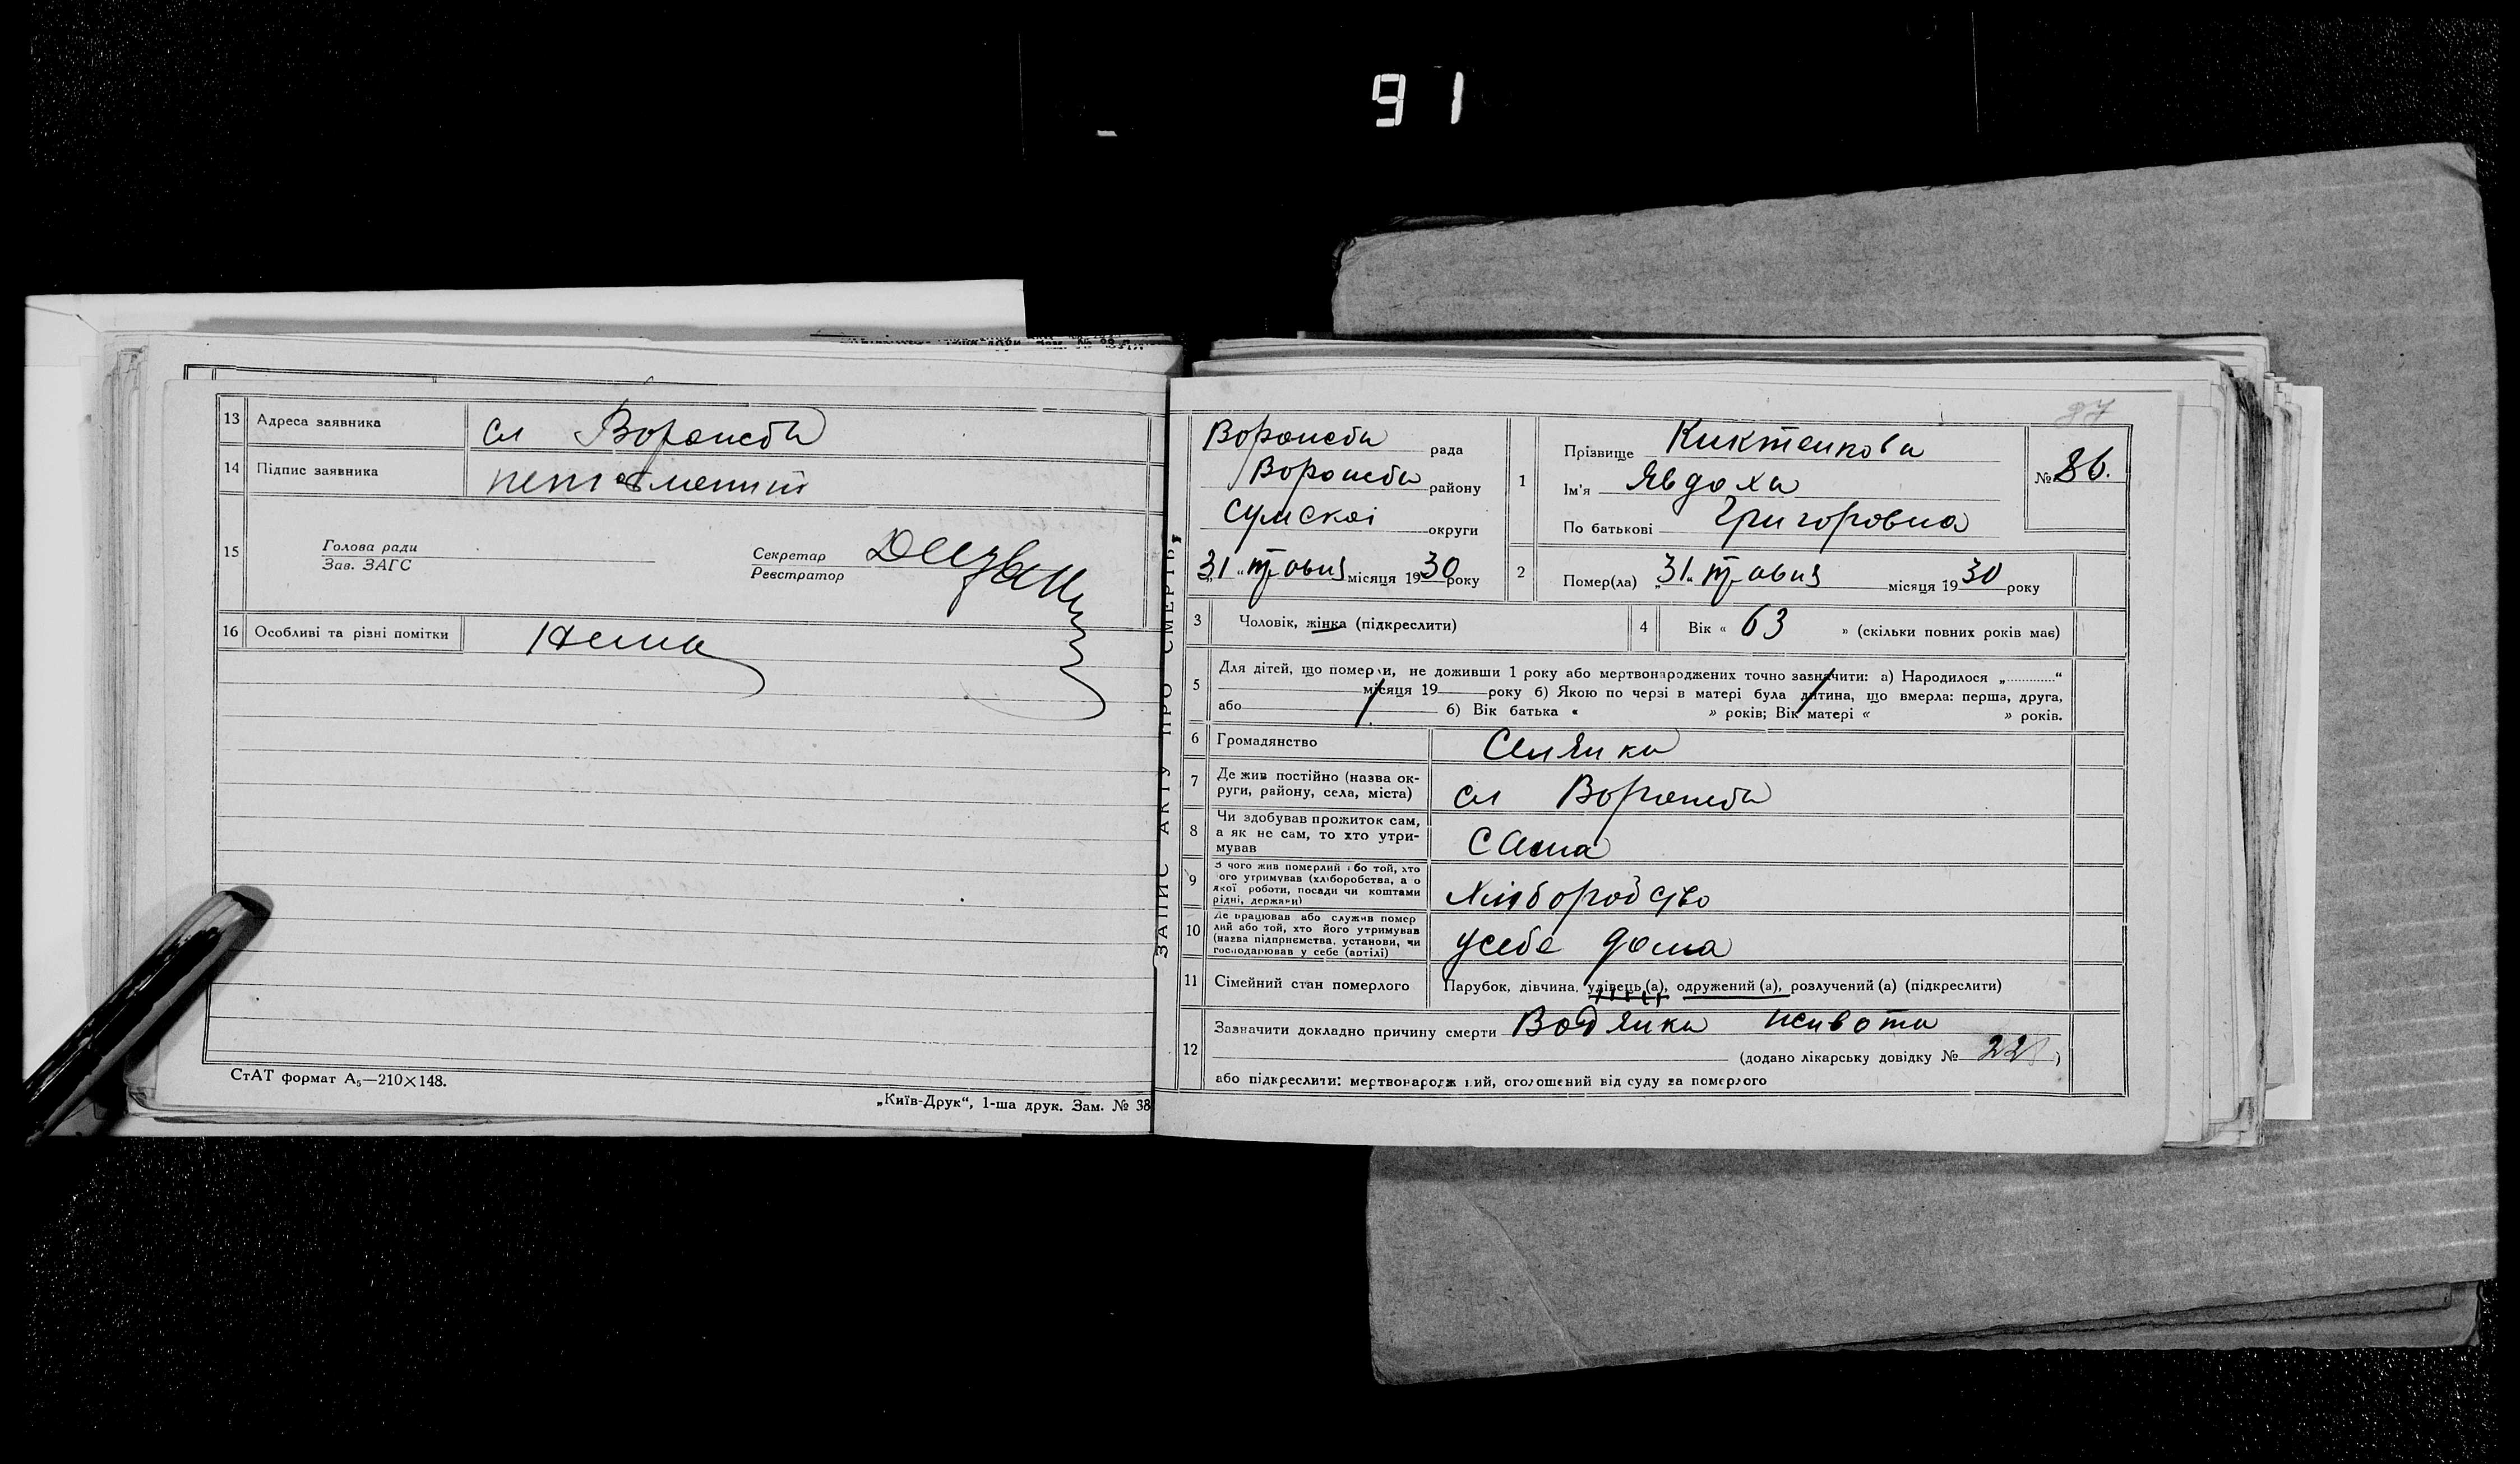 91
13 Адреса заявника сл Ворожба
14 Підпис заявника
15 Голова ради
Зав. ЗАГС
Секретар
Реєстратор
16 Особливі та різні помітки Нема
СтАТ формат А₅—210×148.
„Київ-Друк“, 1-ша друк. Зам. № 38
ЗАПИС АКТУ ПРО СМЕРТЬ
87
Ворожба рада
Ворожба району
Сумскоі округи
„31“ травня місяця 1930 року
1 Прізвище Киктенкова
Ім'я Явдоха
По батькові Григоровна
№ 86.
2 Помер(ла) „31“ травня місяця 1930 року
3 Чоловік, жінка (підкреслити)
4 Вік « 63 » (скільки повних років має)
5 Для дітей, що померли, не доживши 1 року або мертвонароджених точно зазначити: а) Народилося „............“
місяця 19 року б) Якою по черзі в матері була дитина, що вмерла: перша, друга,
або б) Вік батька « » років; Вік матері « » років.
6 Громадянство Селянка
7 Де жив постійно (назва ок-
руги, району, села, міста) сл Ворожба
8 Чи здобував прожиток сам,
а як не сам, то хто утри-
мував сама
9 З чого жив померлий або той, хто
його утримував (хліборобства, а о
якої роботи, посади чи коштами
рідні, держави) Хліборобство
10 Де працював або служив помер
лий або той, хто його утримував
(назва підприємства, установи, чи
господарював у себе (артілі) усебе дома
11 Сімейний стан померлого Парубок, дівчина, удівець (а), одружений (а), розлучений (а) (підкреслити)
12 Зазначити докладно причину смерти Водянка живота
(додано лікарську довідку № )
або підкреслити: мертвонароджений, оголошений від суду за померлого